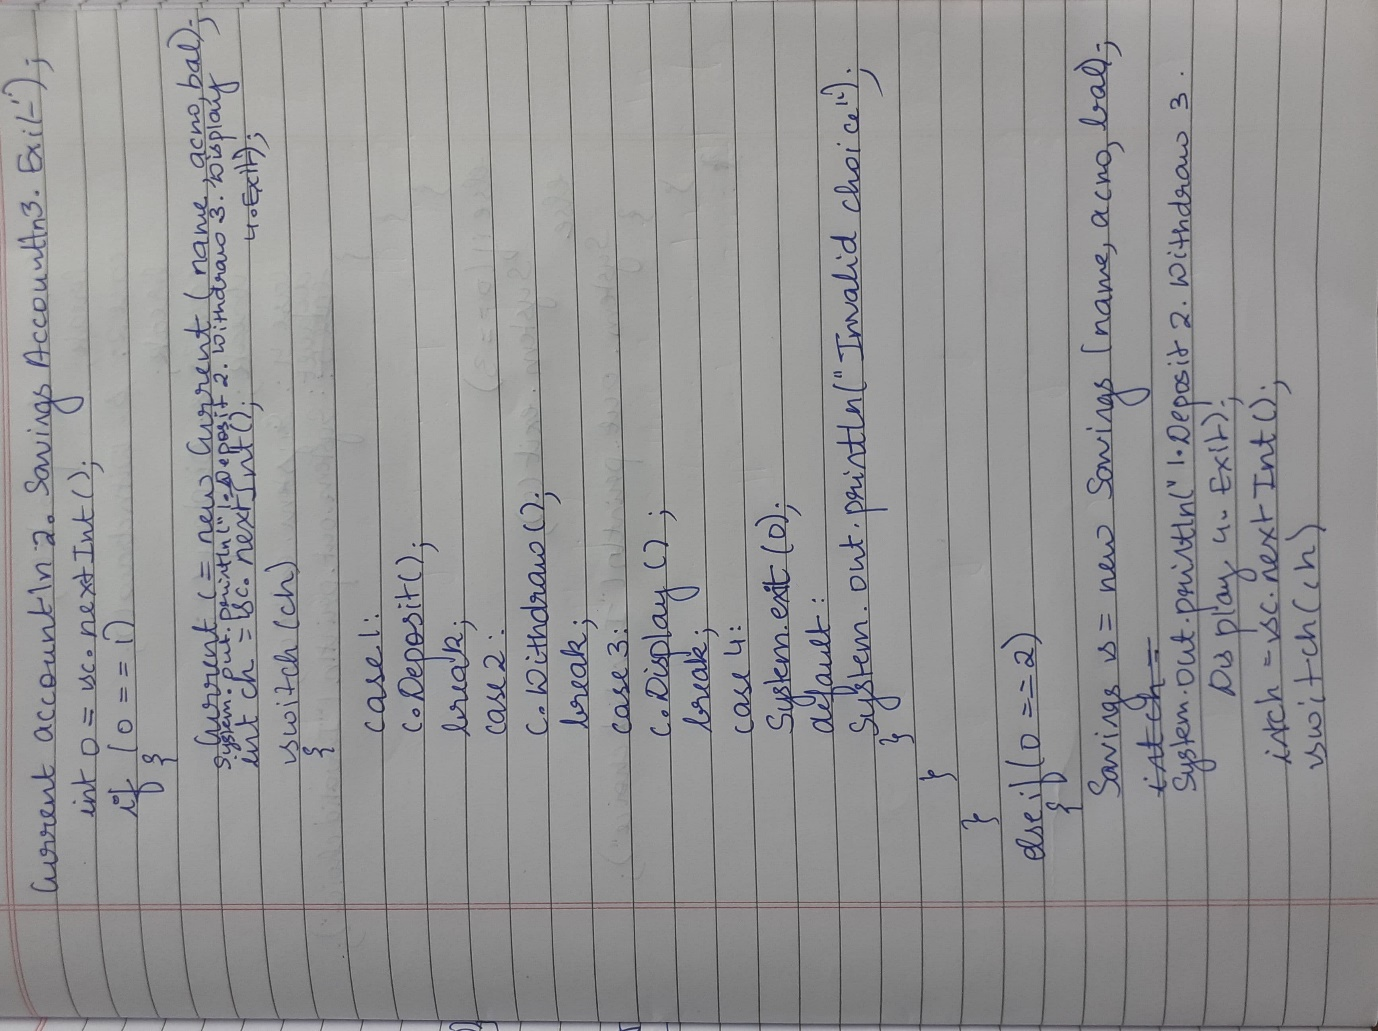 Current account\n 2. Savings Account\n3. Exit");
int o = sc.nextInt();
if (o == 1)
{
Current c = new Current (name, acno, bal);
System.out.println("1.Deposit 2. Withdraw 3. Display
4.Exit);
int ch = sc.nextInt();
switch (ch)
{
case 1:
c.Deposit();
break;
case 2:
c.Withdraw();
break;
case 3:
c.Display();
break;
case 4:
System.exit(0);
default:
System.out.println("Invalid choice");
}
}
}
else if (o == 2)
{
Savings s = new Savings (name, acno, bal);
int ch =
System.out.println("1.Deposit 2. Withdraw 3.
Display 4. Exit);
int ch = sc.nextInt();
switch (ch)